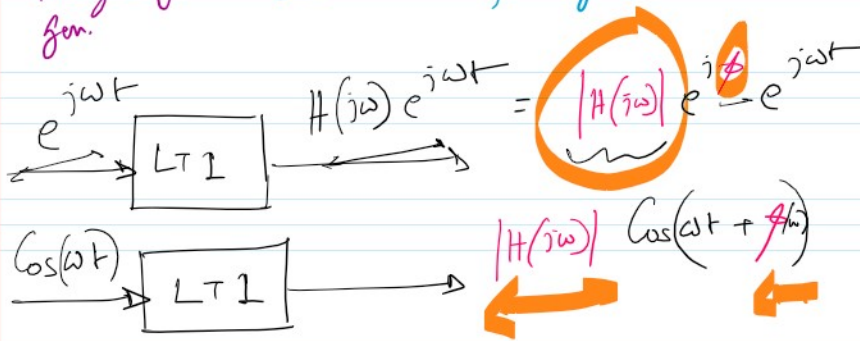 gen.
e^{jωt} LTI H(jω) e^{jωt} = |H(jω)| e^{jϕ} e^{jωt}
Cos(ωt) LTI |H(jω)| Cos(ωt + ϕ(ω))